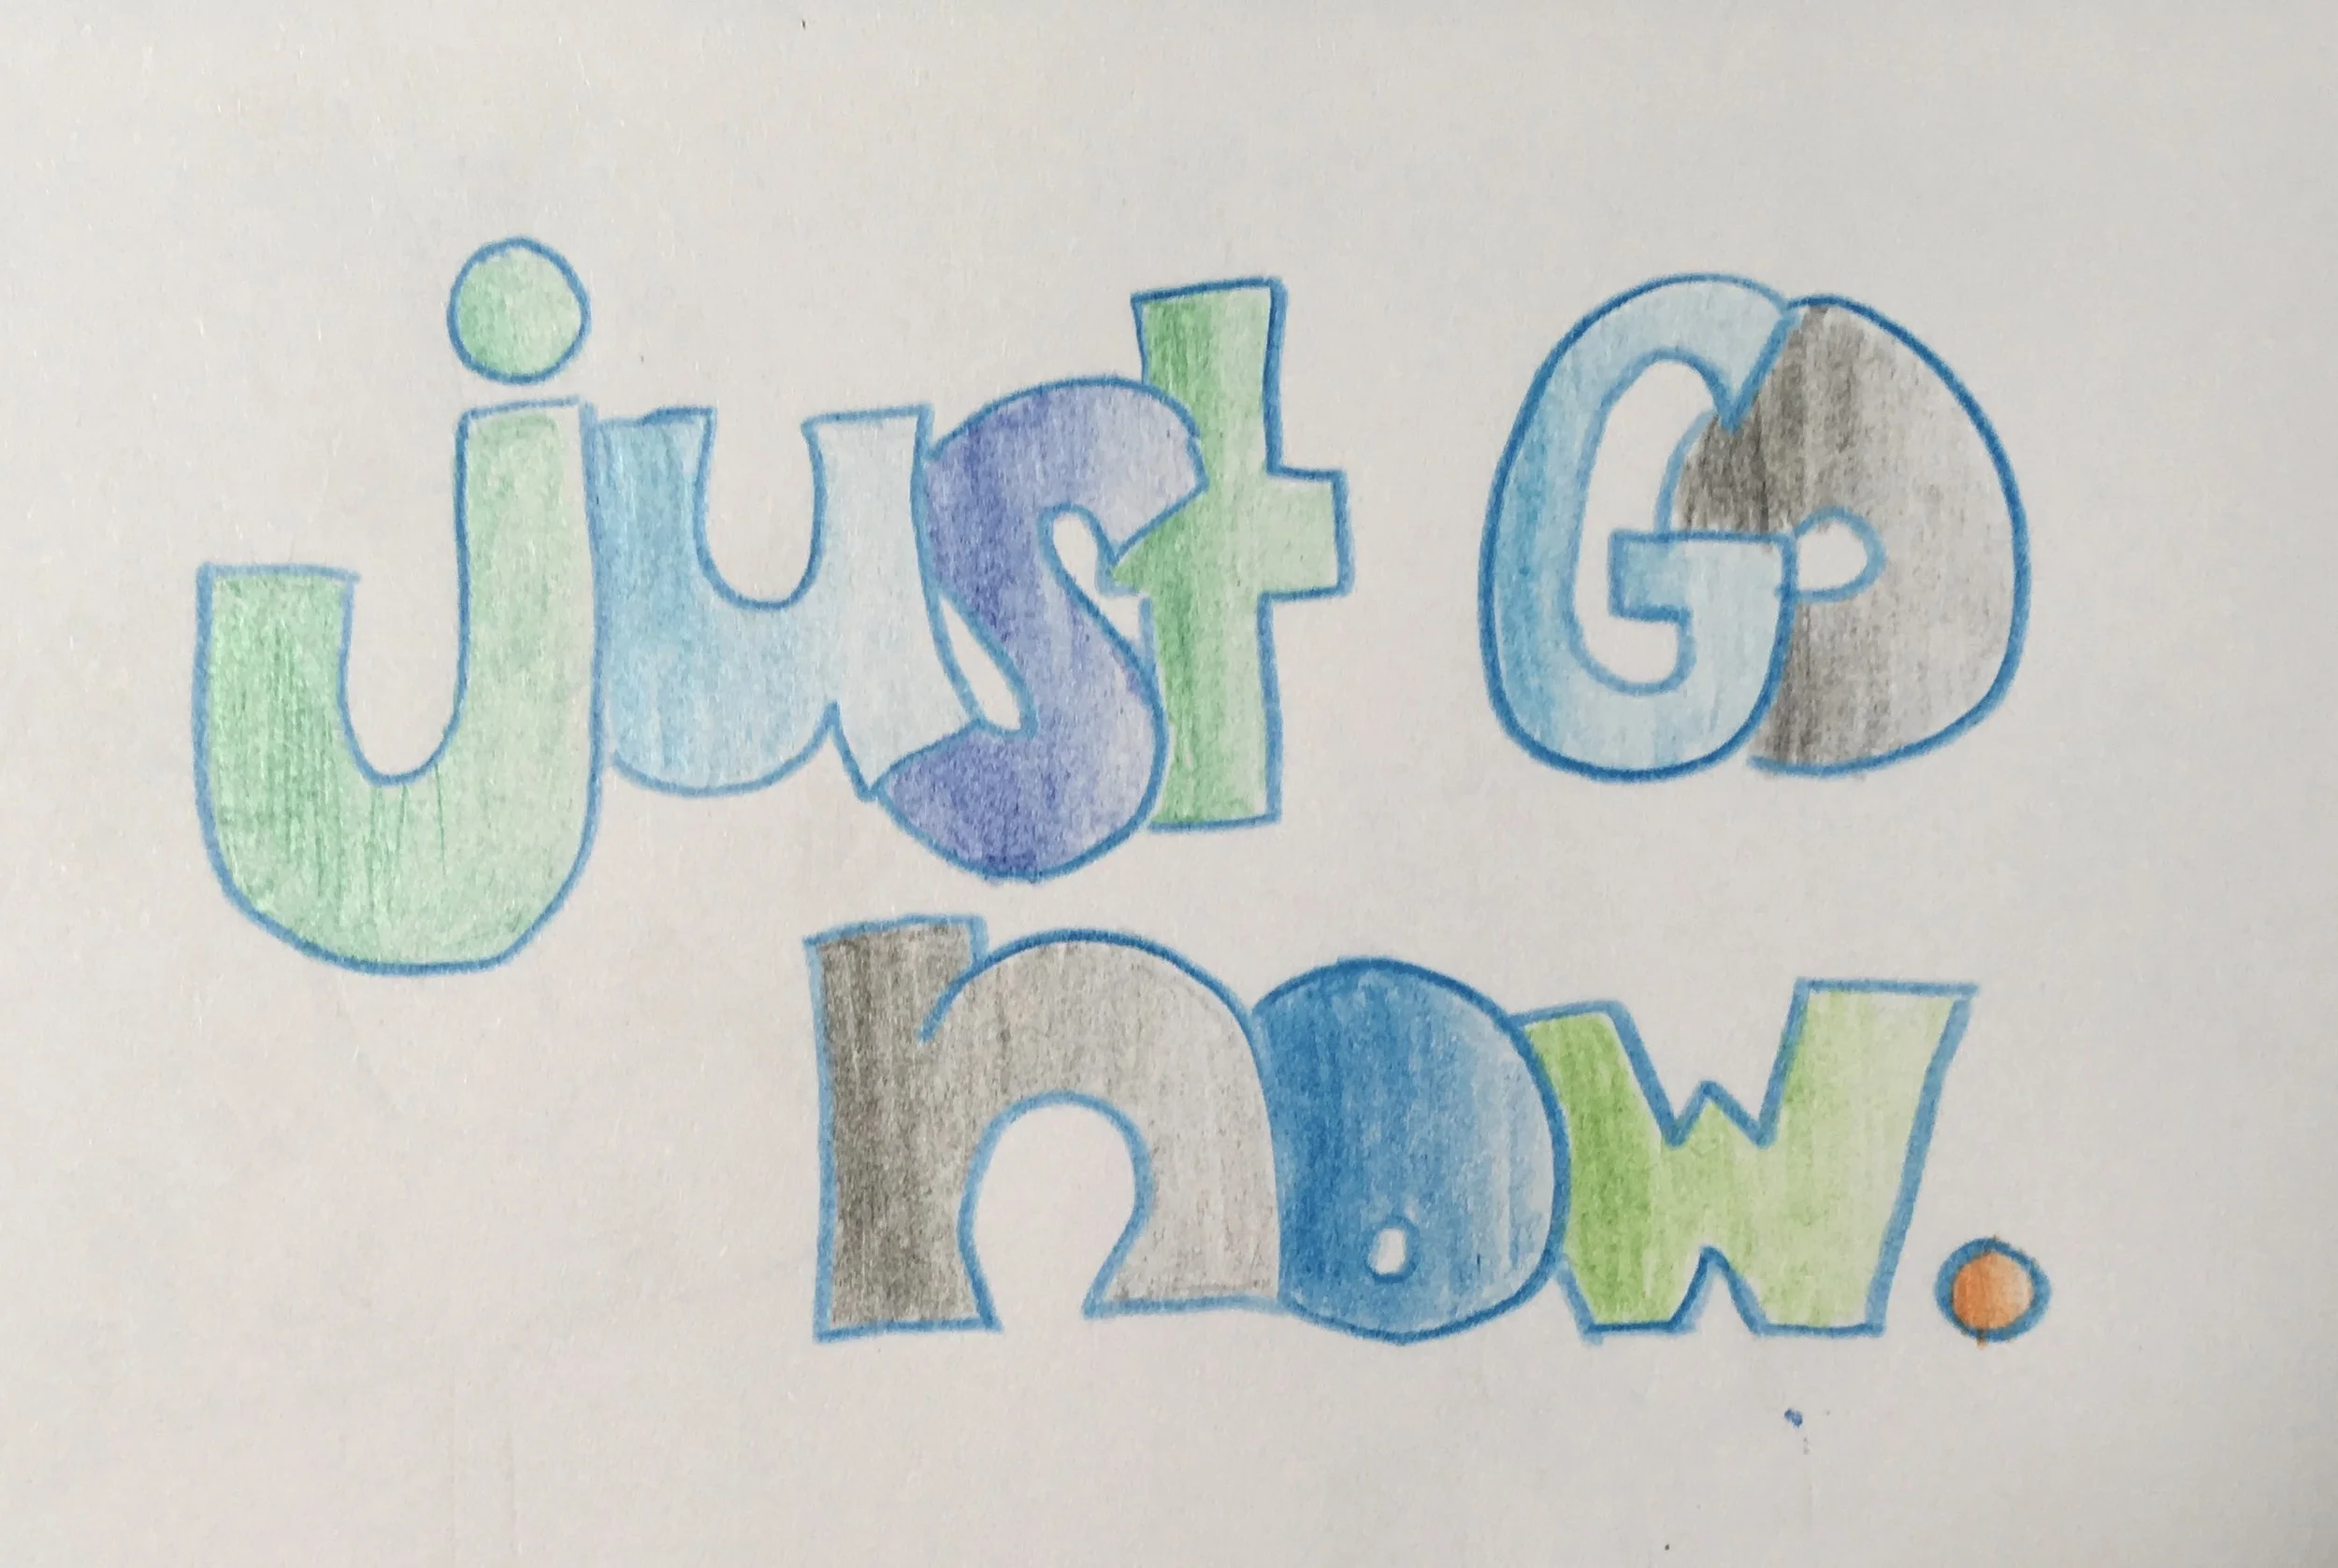 just Go
now.